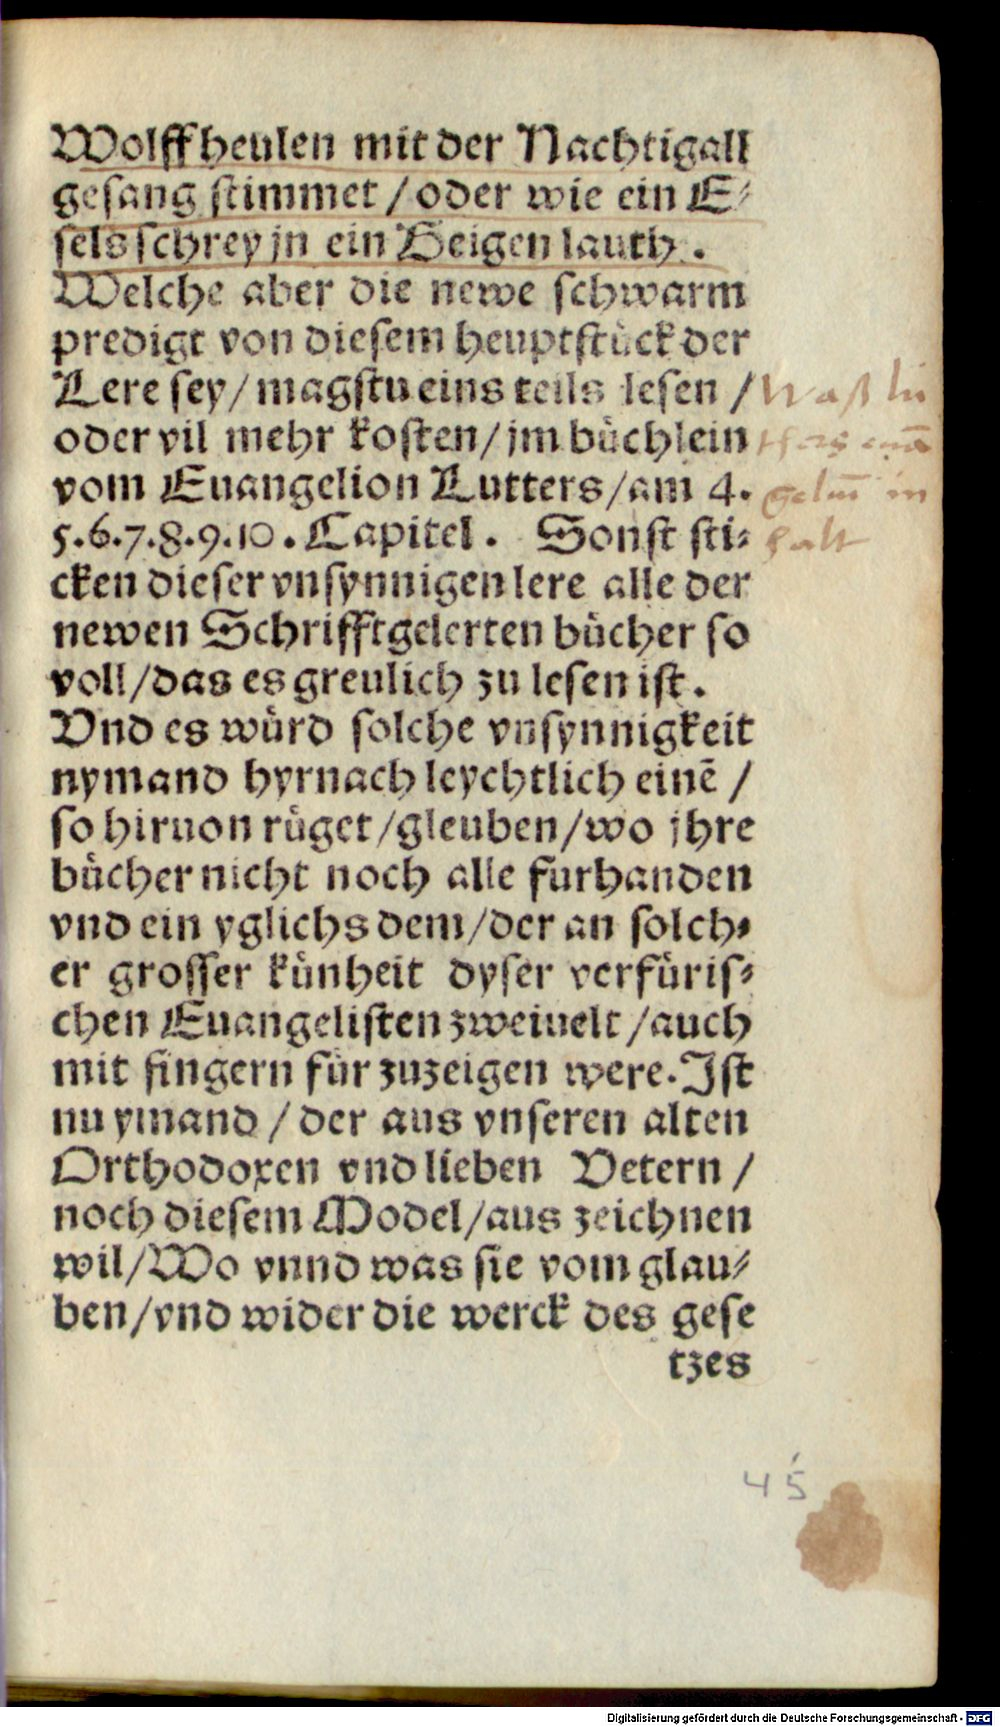 Wolff heulen mit der Nachtigall
gesang stimmet / oder wie ein E⸗
sels schrey jn ein Geigen lauth.
Welche aber die newe schwarm
predigt von diesem heuptstück der
Lere sey / magstu eins teils lesen /
oder vil mehr kosten / jm büchlein
vom Euangelion Lutters / am 4.
5.6.7.8.9.10. Capitel. Sonst sti⸗
cken dieser vnsynnigen lere alle der
newen Schrifftgelerten bücher so
voll / das es greulich zu lesen ist.
Vnd es würd solche vnsynnigkeit
nymand hyrnach leychtlich einē /
so hiruon rüget / gleuben / wo jhre
bücher nicht noch alle furhanden
vnd ein yglichs dem / der an solch⸗
er grosser künheit dyser verfüris⸗
chen Euangelisten zweiuelt / auch
mit fingern für zuzeigen were. Ist
nu ymand / der aus vnseren alten
Orthodoxen vnd lieben Vetern /
noch diesem Model / aus zeichnen
wil / Wo vnnd was sie vom glau⸗
ben / vnd wider die werck des gese
tzes
Waß lu
thers euā
geliū in
halt
45
Digitalisierung gefördert durch die Deutsche Forschungsgemeinschaft - DFG